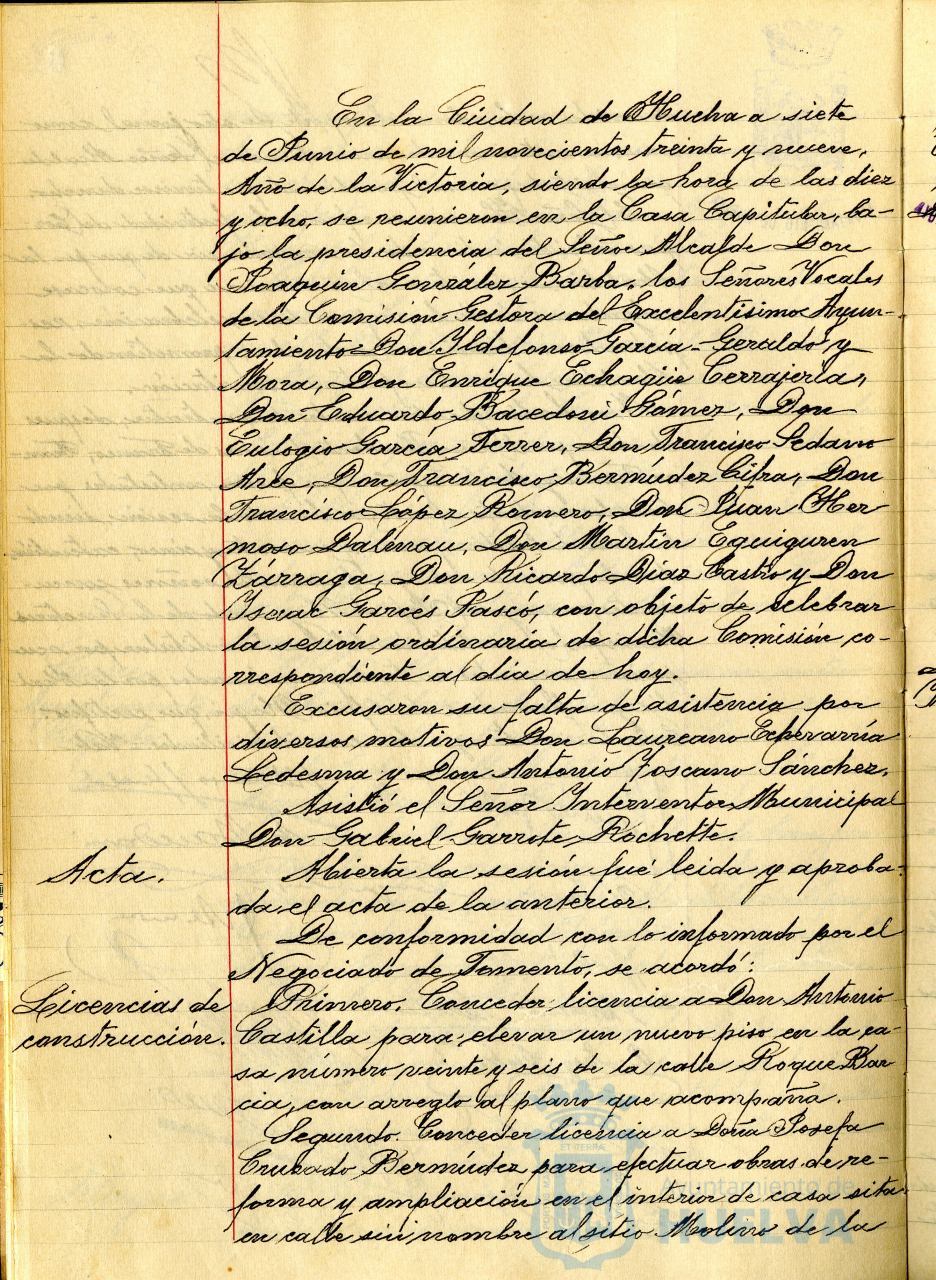 En la Ciudad de Huelva a siete
de Junio de mil novecientos treinta y nueve,
Año de la Victoria, siendo la hora de las diez
y ocho, se reunieron en la Casa Capitular, ba-
jo la presidencia del Señor Alcalde Don
Joaquin González Barba, los Señores Vocales
de la Comisión Gestora del Excelentísimo Ayun-
tamiento Don Yldefonso García-Geraldo y
Mora, Don Enrique Echagüe Cerrajería,
Don Eduardo Bacedoni Gómez, Don
Eulogio García Ferrer, Don Francisco Sedano
Arce, Don Francisco Bermúdez Cifra, Don
Francisco López Romero, Don Juan Her
moso Dalmau, Don Martín Eguiguren
Zárraga, Don Ricardo Díaz Castro y Don
Isaac Garcés Pascó, con objeto de celebrar
la sesión ordinaria de dicha Comisión co-
rrespondiente al día de hoy.
Excusaron su falta de asistencia por
diversos motivos Don Laureano Echevarría
Ledesma y Don Antonio Toscano Sánchez.
Asistió el Señor Interventor Municipal
Don Gabriel Garrote Rochette.
Acta.
Abierta la sesión fué leida y aproba-
da el acta de la anterior.
De conformidad con lo informado por el
Negociado de Fomento, se acordó:
Licencias de
construcción.
Primero. Conceder licencia a Don Antonio
Castilla para elevar un nuevo piso en la ca-
sa número veinte y seis de la calle Roque Bar
cia, con arreglo al plano que acompaña.
Segundo. Conceder licencia a Doña Josefa
Cruzado Bermúdez para efectuar obras de re-
forma y ampliación en el interior de casa sita
en calle sin nombre al sitio Molino de la
Ayuntamiento de
HUELVA